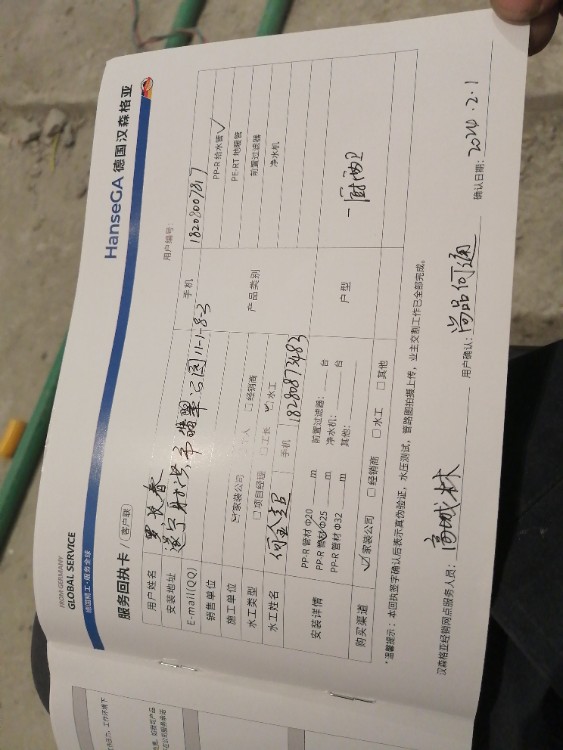 HanseGA 德国汉森格亚
FROM GERMANY
GLOBAL SERVICE
德国精工·服务全球
服务回执卡/(客户联)
用户编号:
用户姓名 罗长春 手机 18208007817
安装地址 11-1-8-3
E-mail(QQ)
销售单位 ☑家装公司 □经销商
产品类别
PP-R 给水管 ✓
PE-RT 地暖管
前置过滤器
净水机
施工单位
水工类型 □项目经理 □工长 ☑水工
水工姓名 手机 18280873483
安装详情
PP-R 管材 Φ20 m 前置过滤器: 台
PP-R 管材 Φ25 m 净水机: 台
PP-R 管材 Φ32 m 其他:
户型 一厨两卫
购买渠道 ☑家装公司 □经销商 □水工 □其他
*温馨提示:本回执签字确认后表示真伪验证,水压测试,管路图拍摄上传,业主交割工作已全部完成。
汉森格亚经销网点服务人员: 高城林 用户确认: 尚品何通 确认日期: 2024.2.1